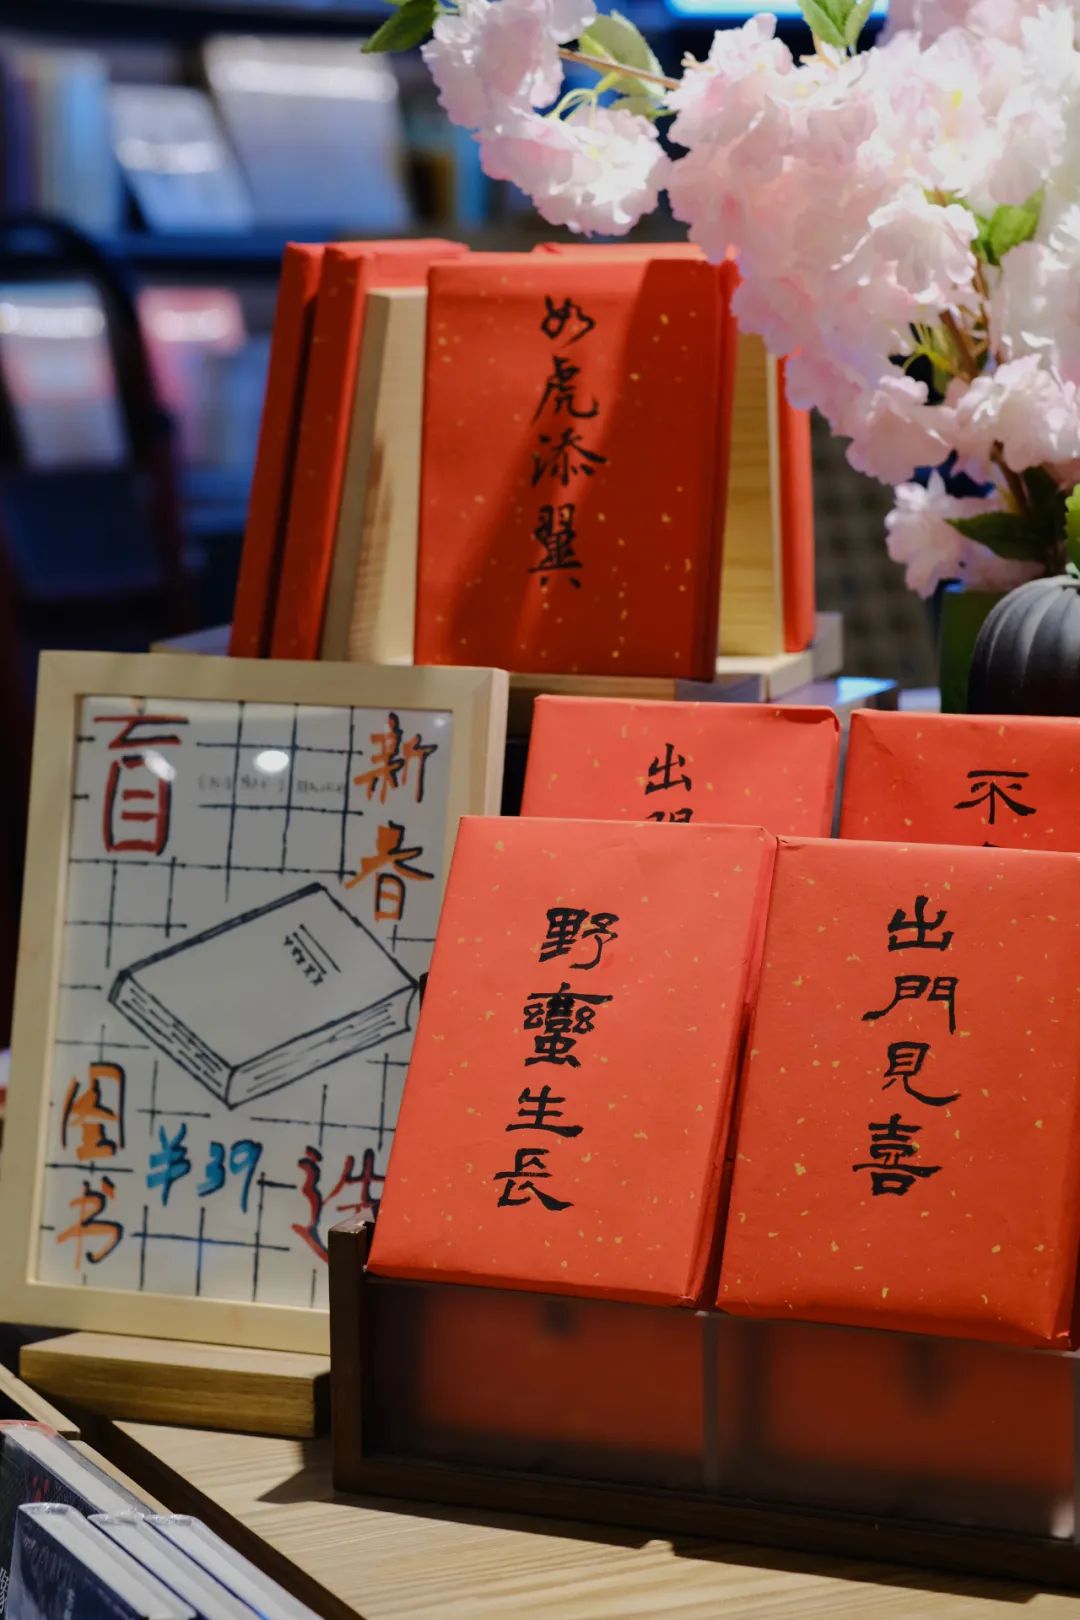 如虎添翼
出
不
野蠻生長
出門見喜
新春
盲
选
图书
¥39